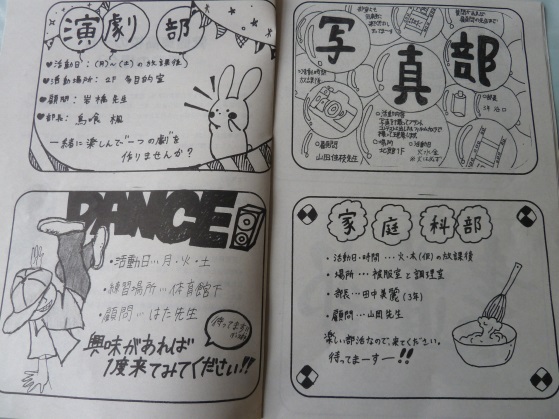 演劇部
♥活動日:(月)~(土)の放課後
♥活動場所:2F 多目的室
♥顧問:岩橋先生
♥部長:鳥喰 楓
一緒に楽しんで"一つの劇"を
作りませんか?
DANCE
・活動日…月・火・土
・練習場所…体育館下
・顧問…はた先生
待ってます!!
興味があれば
1度来てみてください!!
写真部
○活動内容
○場所
北館1F
○活動日
○顧問
山田佳枝先生
○部長
家庭科部
・活動日・時間…火・木(仮)の放課後
・場所…被服室と調理室
・部長…田中美麗(3年)
・顧問…山田先生
楽しい部活なので、来てください。
待ってまーすー!!